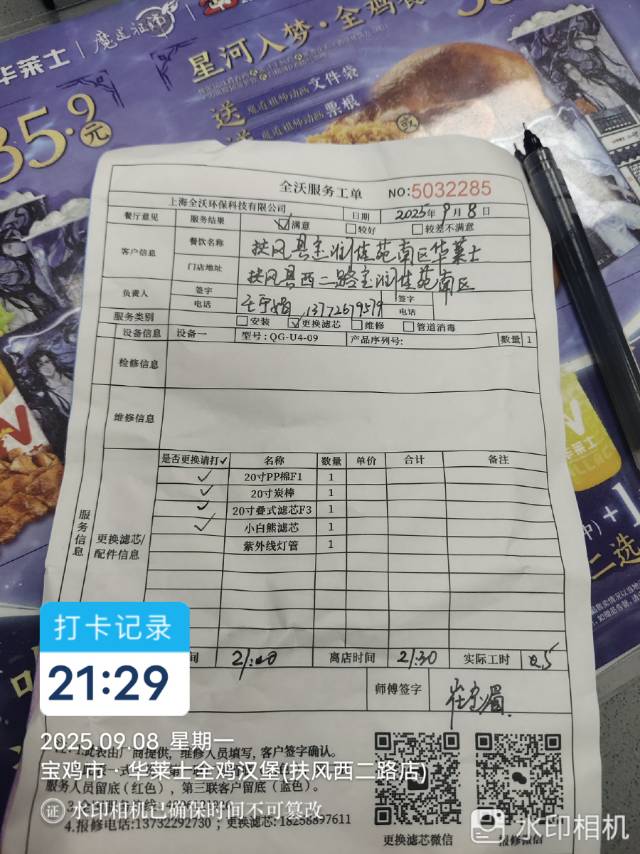 华莱士
魔道祖师
35.9元
星河入梦·全鸡餐
送 魔道祖师动画 文件袋
送 魔道祖师动画 票根
或
全沃服务工单 NO:5032285
上海全沃环保科技有限公司 日期 2025年9月8日
餐厅意见 服务结果 ☑满意 □较好 □较差不满意
客户信息 餐饮名称 扶风县宝润佳苑南区华莱士
门店地址 扶风县西二路宝润佳苑南区
负责人 签字 签字
电话 13772679579 电话
服务类别 □安装 ☑更换滤芯 □维修 □管道消毒
设备信息 设备一 型号:QG-U4-09 产品序列号: 数量 1
检修信息
维修信息
服务信息
更换滤芯/配件信息
是否更换请打✓ 名称 数量 单价 合计 备注
✓ 20寸PP棉F1 1
✓ 20寸炭棒 1
✓ 20寸叠式滤芯F3 1
✓ 小白熊滤芯 1
紫外线灯管 1
间 21:00 离店时间 21:30 实际工时 0.5
师傅签字
打卡记录
21:29
2025.09.08 星期一
宝鸡市·华莱士全鸡汉堡(扶风西二路店)
水印相机已确保时间不可篡改
1.此表由厂商提供,维修人员填写,客户签字确认。
服务人员留底(红色),第三联客户留底(蓝色)。
4.报修电话:13732292730;更换滤芯:18258897611
更换滤芯微信 报修微信
水印相机
华莱士
+1
二选